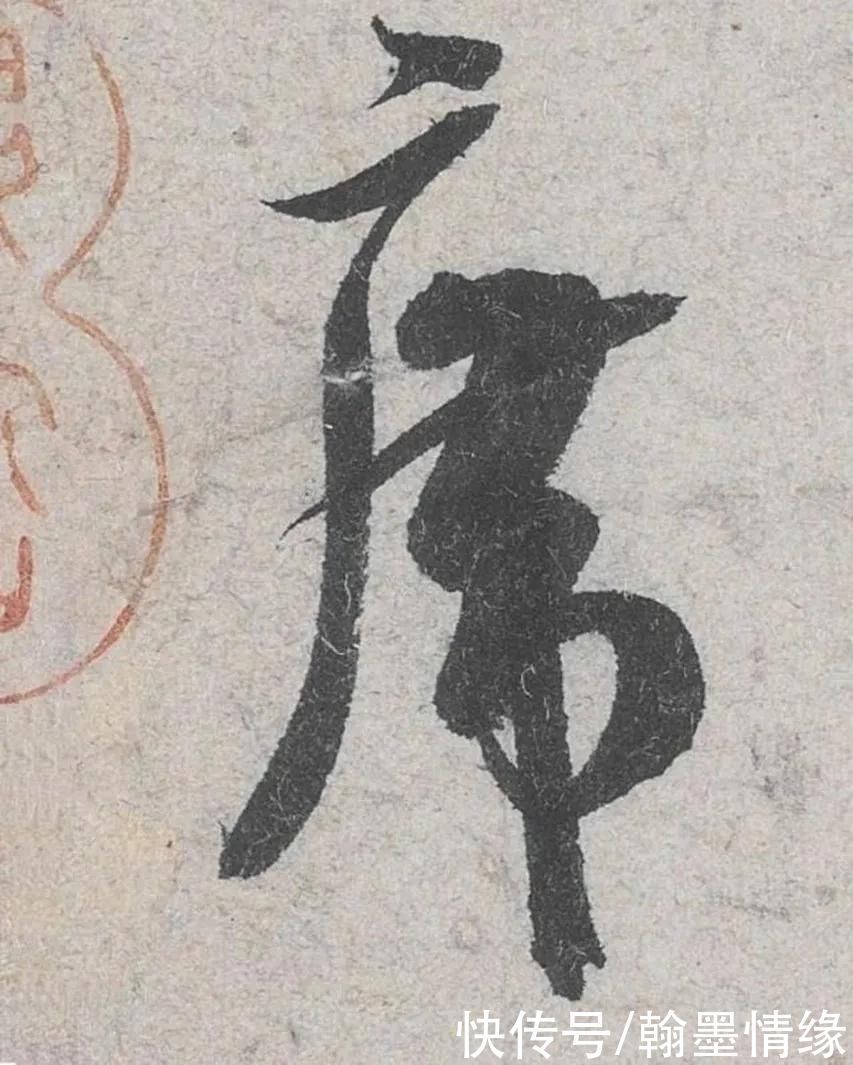 席
快传号/翰墨情缘